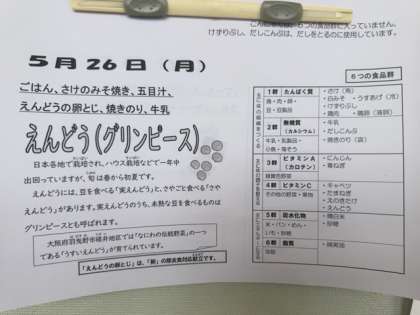 こんにゃくは、6つの食品群に入っていません。
けずりぶし、だしこんぶは、だしをとるのに使用しています。
5月26日（月）
ごはん、さけのみそ焼き、五目汁、
えんどうの卵とじ、焼きのり、牛乳
えんどう（グリンピース）
日本各地で栽培され、ハウス栽培などで一年中
出回っていますが、旬は春から初夏です。
えんどうには、豆を食べる「実えんどう」と、さやごと食べる「さや
えんどう」があります。実えんどうのうち、未熟な豆を食べるものは
グリンピースとも呼ばれます。
大阪府羽曳野市碓井地区では「なにわの伝統野菜」の一つ
である「うすいえんどう」が育てられています。
「えんどうの卵とじ」は、「卵」の除去食対応献立です。
6つの食品群
1群 たんぱく質
魚・肉・卵・
豆・豆製品
・さけ（魚）
・白みそ ・うすあげ（汁）
・けずりぶし
・鶏肉 ・鶏卵（液卵）
2群 無機質
（カルシウム）
牛乳・乳製品・
小魚・海そう
・牛乳
・だしこんぶ
・焼きのり（袋）
3群 ビタミンA
（カロテン）
緑黄色野菜
・にんじん
・青ねぎ
4群 ビタミンC
その他の野菜・果物
・キャベツ
・たまねぎ
・えのきたけ
・えんどう
5群 炭水化物
米・パン・めん・
いも・砂糖
・精白米
・砂糖
6群 脂質
油脂
・綿実油